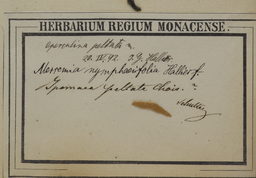 HERBARIUM REGIUM MONACENSE.
Operculina peltata
20.IV.92 H. Hallier
Merremia nymphaeifolia Hallier f.
Ipomoea peltata Chois.